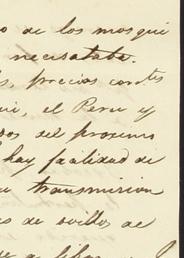 o de los mosqui
necisataba.
s, precios corrtes
ui, el Peru y
os del proximo
hay facilidad de
u transmision
es de ovillos de